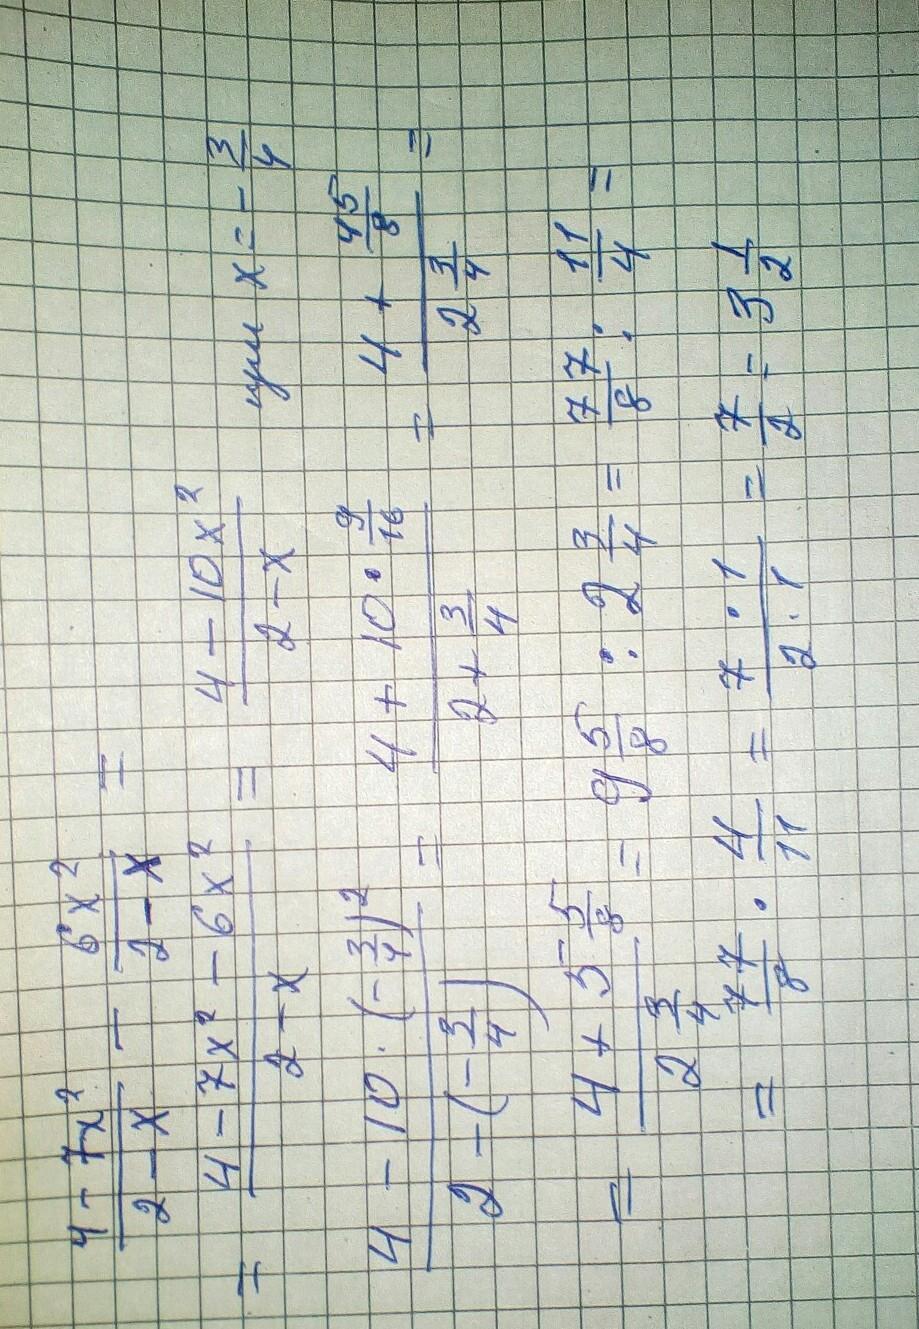 (4 - 7x²)/(2 - x) - 6x²/(2 - x) =
= (4 - 7x² - 6x²)/(2 - x) = (4 - 10x²)/(2 - x) при x = -3/4
(4 - 10 · (-3/4)²)/(2 - (-3/4)) = (4 + 10 · 9/16)/(2 + 3/4) = (4 + 45/8)/(2 3/4) =
= (4 + 5 5/8)/(2 3/4) = 9 5/8 : 2 3/4 = 77/8 : 11/4 =
= 77/8 · 4/11 = (7 · 1)/(2 · 1) = 7/2 = 3 1/2